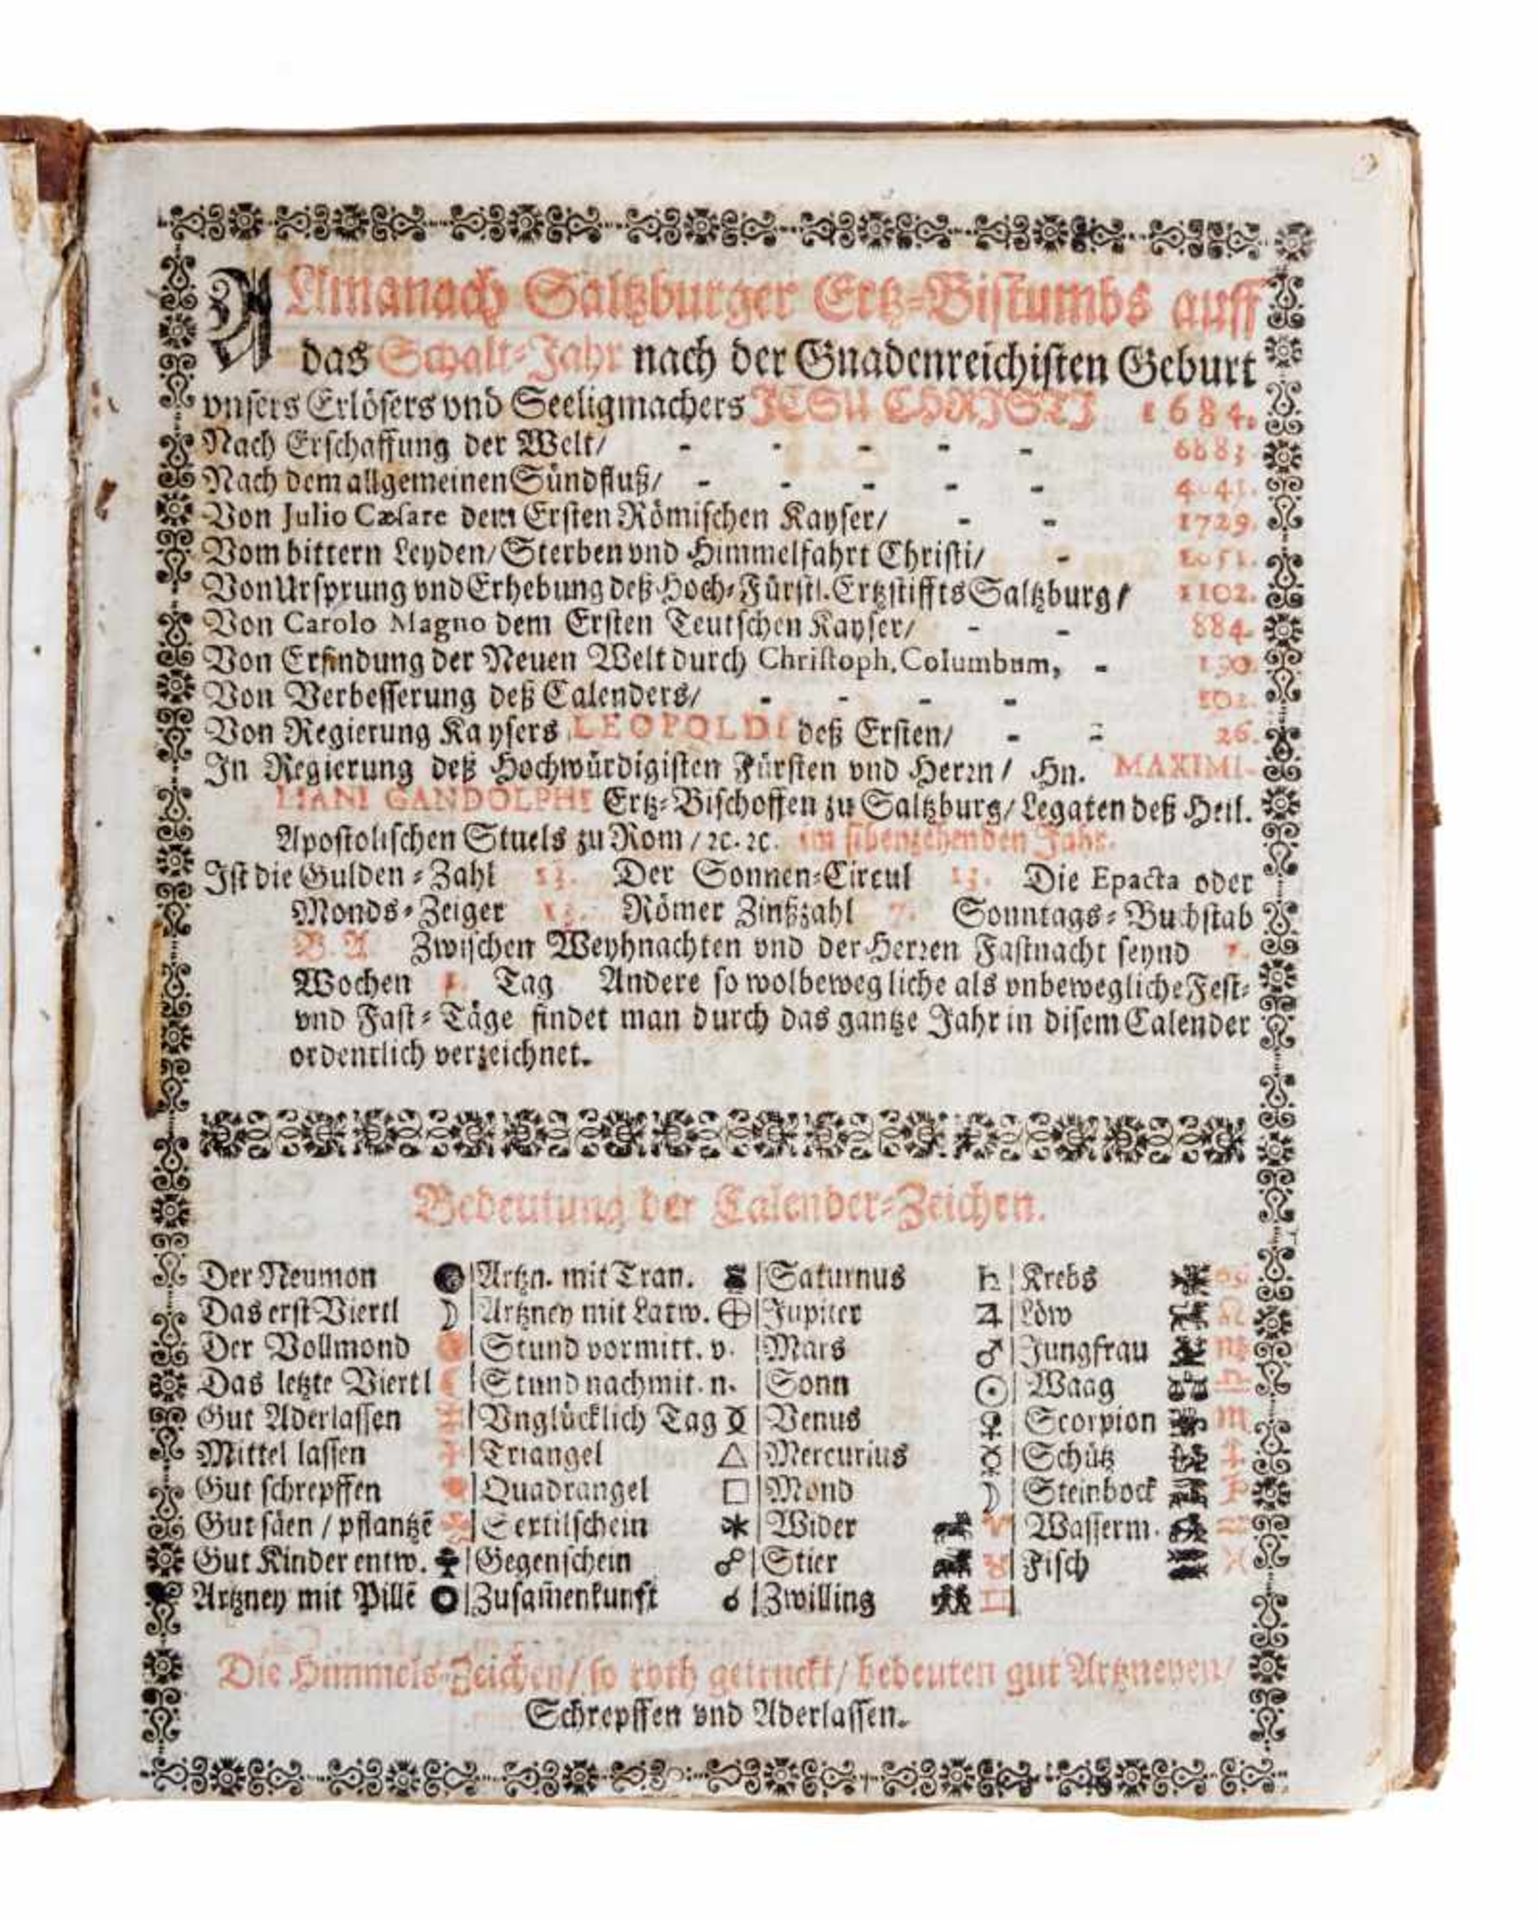 Almanach Saltzburger Ertz-Bistumbs auff
das Schalt-Jahr nach der Gnadenreichisten Geburt
vnsers Erlösers vnd Seeligmachers JESU CHRISTI 1684.
Nach Erschaffung der Welt/ - - - - -
Nach dem allgemeinen Sündfluß/ - - - - -
Von Julio Cæsare dem Ersten Römischen Kayser/ - - 1729.
Vom bittern Leyden/ Sterben vnd Himmelfahrt Christi/ - 1651.
Von Ursprung vnd Erhebung deß Hoch-Fürstl. Ertzstiffts Saltzburg/ 1102.
Von Carolo Magno dem Ersten Teutschen Kayser/ - - 884.
Von Erfindung der Neuen Welt durch Christoph. Columbum, -
Von Verbesserung deß Calenders/ - - - -
Von Regierung Kaysers LEOPOLDI deß Ersten/ - - 26.
In Regierung deß Hochwürdigisten Fürsten vnd Herꝛn/ Hn. MAXIMI-
LIANI GANDOLPHI Ertz-Bischoffen zu Saltzburg/ Legaten deß Heil.
Apostolischen Stuels zu Rom/ ꝛc. ꝛc. im sibenzehenden Jahr.
Ist die Gulden-Zahl 13. Der Sonnen-Circul 13. Die Epacta oder
Monds-Zeiger 13. Römer Zinßzahl 7. Sonntags-Buchstab
B. A Zwischen Weyhnachten vnd der Herꝛen Fastnacht seynd 7.
Wochen 1. Tag Andere so wol bewegliche als vnbewegliche Fest-
vnd Fast-Täge findet man durch das gantze Jahr in disem Calender
ordentlich verzeichnet.
Bedeutung der Calender-Zeichen.
Der Neumon ● | Artzn. mit Tran. | Saturnus ♄ | Krebs ♋
Das erst Viertl ☽ | Artzney mit Latw. ⊕ | Jupiter ♃ | Löw ♌
Der Vollmond | Stund vormitt. v. | Mars ♂ | Jungfrau ♍
Das letzte Viertl ☾ | Stund nachmit. n. | Sonn ☉ | Waag ♎
Gut Aderlassen | Vnglücklich Tag | Venus ♀ | Scorpion ♏
Mittel lassen | Triangel △ | Mercurius ☿ | Schütz ♐
Gut schrepffen | Quadrangel □ | Mond ☽ | Steinbock ♑
Gut säen / pflantzē | Sextilschein ✱ | Wider ♈ | Wasserm. ♒
Gut Kinder entw. | Gegenschein ☍ | Stier ♉ | Fisch ♓
Artzney mit Pillē | Zusam̄enkunft ☌ | Zwilling ♊ |
Die Himmels-Zeichen/ so roth getruckt/ bedeuten gut Artzneyen/
Schrepffen vnd Aderlassen.